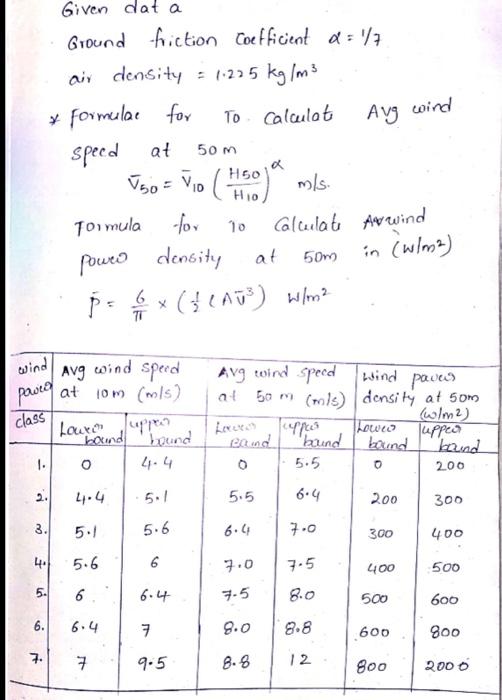 Given dat a
Ground friction Coefficient α = 1/7
air density = 1.225 kg/m³
* formulae for To Calculate Avg wind
speed at 50 m
V̅50 = V̅10 (H50/H10)^α m/s.
Formula for To Calculate Av wind
power density at 50m in (W/m²)
P̅ = 6/π × (½ ρ A V̅³) W/m²
wind power class | Avg wind speed at 10m (m/s) | Avg wind speed at 50 m (m/s) | Wind power density at 50m (w/m2)
Lower bound | upper bound | Lower Bound | upper bound | Lower bound | upper bound
1. | 0 | 4.4 | 0 | 5.5 | 0 | 200
2. | 4.4 | 5.1 | 5.5 | 6.4 | 200 | 300
3. | 5.1 | 5.6 | 6.4 | 7.0 | 300 | 400
4. | 5.6 | 6 | 7.0 | 7.5 | 400 | 500
5. | 6 | 6.4 | 7.5 | 8.0 | 500 | 600
6. | 6.4 | 7 | 8.0 | 8.8 | 600 | 800
7. | 7 | 9.5 | 8.8 | 12 | 800 | 2000